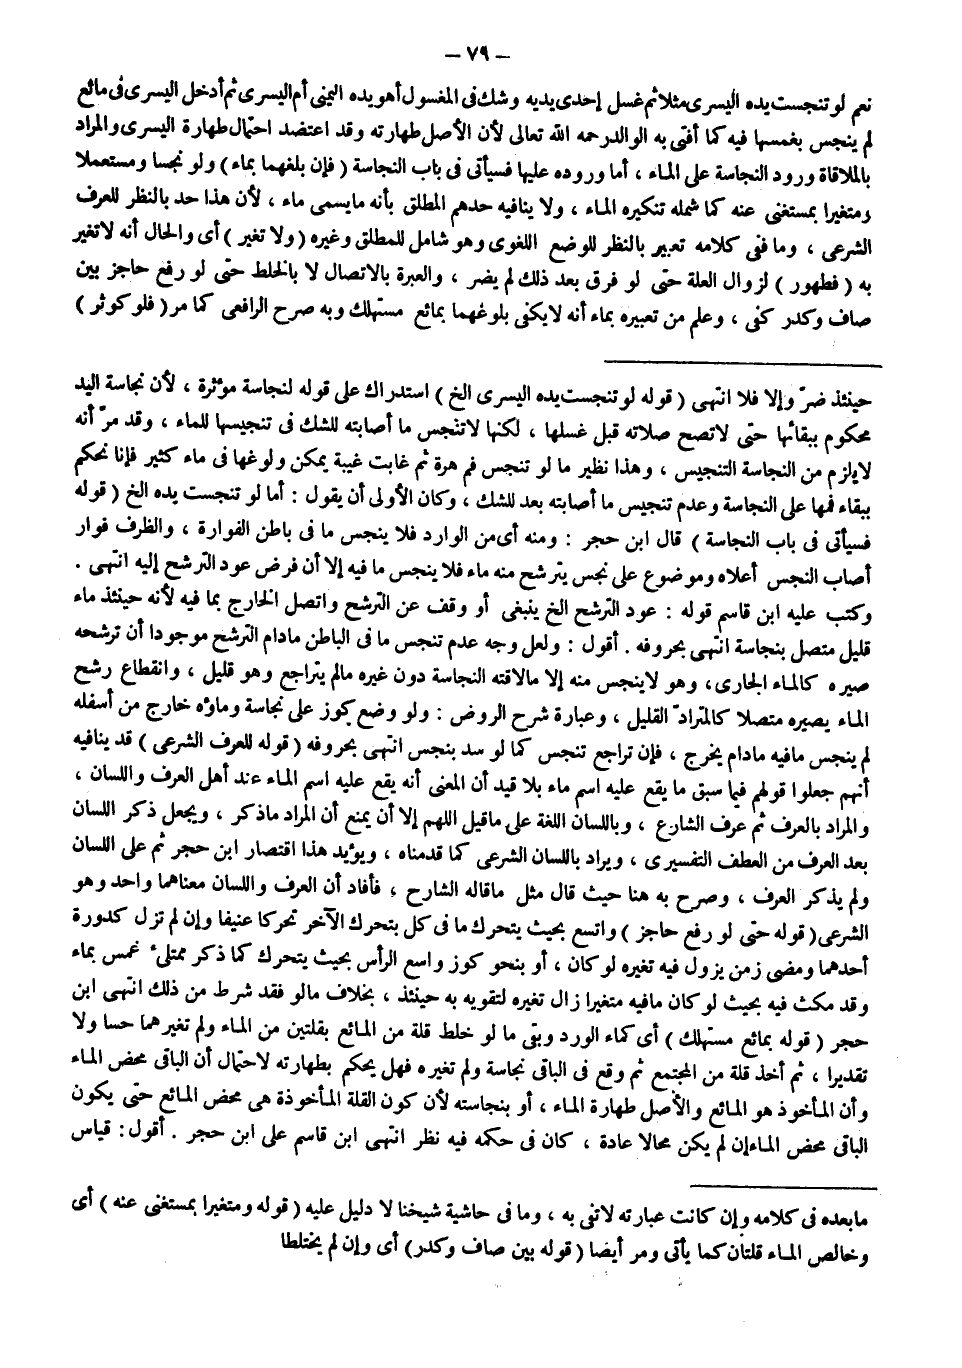 — ٧٩ —
نعم لو تنجست يده اليسرى مثلا ثم غسل إحدى يديه وشك فى المغسول أهو يده اليمنى أم اليسرى ثم أدخل اليسرى فى مائع
لم ينجس بغمسها فيه كما أفتى به الوالد رحمه الله تعالى لأن الأصل طهارته وقد اعتضد احتمال طهارة اليسرى والمراد
بالملاقاة ورود النجاسة على الماء ، أما وروده عليها فسيأتى فى باب النجاسة ( فإن بلغهما بماء ) ولو نجسا ومستعملا
ومتغيرا بمستغنى عنه كما شمله تنكيره الماء ، ولا ينافيه حدهم المطلق بأنه مايسمى ماء ، لأن هذا حد بالنظر للعرف
الشرعى ، وما فى كلامه تعبير بالنظر للوضع اللغوى وهو شامل للمطلق وغيره ( ولا تغير ) أى والحال أنه لا تغير
به ( فطهور ) لزوال العلة حتى لو فرق بعد ذلك لم يضر ، والعبرة بالاتصال لا بالخلط حتى لو رفع حاجز بين
صاف وكدر كفى ، وعلم من تعبيره بماء أنه لايكفى بلوغهما بمائع مستهلك وبه صرح الرافعى كما مر ( فلو كوثر )
حينئذ ضرّ وإلا فلا انتهى ( قوله لو تنجست يده اليسرى الخ ) استدراك على قوله لنجاسة مؤثرة ، لأن نجاسة اليد
محكوم ببقائها حتى لاتصح صلاته قبل غسلها ، لكنها لاتنجس ما أصابته للشك فى تنجيسها للماء ، وقد مرّ أنه
لايلزم من النجاسة التنجيس ، وهذا نظير ما لو تنجس فم هرة ثم غابت غيبة يمكن ولوغها فى ماء كثير فإنا نحكم
ببقاء فمها على النجاسة وعدم تنجيس ما أصابته بعد للشك ، وكان الأولى أن يقول : أما لو تنجست يده الخ ( قوله
فسيأتى فى باب النجاسة ) قال ابن حجر : ومنه أى من الوارد فلا ينجس ما فى باطن الفوارة ، والظرف فوار
أصاب النجس أعلاه وموضوع على نجس يترشح منه ماء فلا ينجس ما فيه إلا أن فرض عود الترشح إليه انتهى .
وكتب عليه ابن قاسم قوله : عود الترشح الخ ينبغى أو وقف عن الترشح واتصل الخارج بما فيه لأنه حينئذ ماء
قليل متصل بنجاسة انتهى بحروفه . أقول : ولعل وجه عدم تنجس ما فى الباطن مادام الترشح موجودا أن ترشحه
صيره كالماء الجارى، وهو لاينجس منه إلا مالاقته النجاسة دون غيره مالم يتراجع وهو قليل ، وانقطاع رشح
الماء يصيره متصلا كالمترادّ القليل ، وعبارة شرح الروض : ولو وضع كوز على نجاسة وماؤه خارج من أسفله
لم ينجس مافيه مادام يخرج ، فإن تراجع تنجس كما لو سد بنجس انتهى بحروفه ( قوله للعرف الشرعى ) قد ينافيه
أنهم جعلوا قولهم فيما سبق ما يقع عليه اسم ماء بلا قيد أن المعنى أنه يقع عليه اسم الماء عند أهل العرف واللسان ،
والمراد بالعرف ثم عرف الشارع ، وباللسان اللغة على ماقيل اللهم إلا أن يمنع أن المراد ماذكر ، ويجعل ذكر اللسان
بعد العرف من العطف التفسيرى ، ويراد باللسان الشرعى كما قدمناه ، ويؤيد هذا اقتصار ابن حجر ثم على اللسان
ولم يذكر العرف ، وصرح به هنا حيث قال مثل ماقاله الشارح ، فأفاد أن العرف واللسان معناهما واحد وهو
الشرعى ( قوله حتى لو رفع حاجز ) واتسع بحيث يتحرك ما فى كل بتحرك الآخر تحركا عنيفا وإن لم تزل كدورة
أحدهما ومضى زمن يزول فيه تغيره لو كان ، أو بنحو كوز واسع الرأس بحيث يتحرك كما ذكر ممتلئ غمس بماء
وقد مكث فيه بحيث لو كان مافيه متغيرا زال تغيره لتقويه به حينئذ ، بخلاف مالو فقد شرط من ذلك انتهى ابن
حجر ( قوله بمائع مستهلك ) أى كماء الورد وبقى ما لو خلط قلة من المائع بقلتين من الماء ولم تغيرهما حسا ولا
تقديرا ، ثم أخذ قلة من المجتمع ثم وقع فى الباقى نجاسة ولم تغيره فهل يحكم بطهارته لاحتمال أن الباقى محض الماء
وأن المأخوذ هو المائع والأصل طهارة الماء ، أو بنجاسته لأن كون القلة المأخوذة هى محض المائع حتى يكون
الباقى محض الماء إن لم يكن محالا عادة ، كان فى حكمه فيه نظر انتهى ابن قاسم على ابن حجر . أقول : قياس
مابعده فى كلامه وإن كانت عبارته لاتفى به ، وما فى حاشية شيخنا لا دليل عليه ( قوله ومتغيرا بمستغنى عنه ) أى
وخالص الماء قلتان كما يأتى ومر أيضا ( قوله بين صاف وكدر) أى وإن لم يختلطا